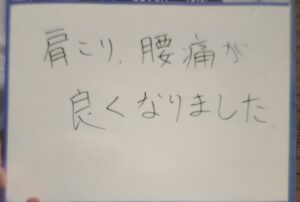 肩こり、腰痛が
良くなりました